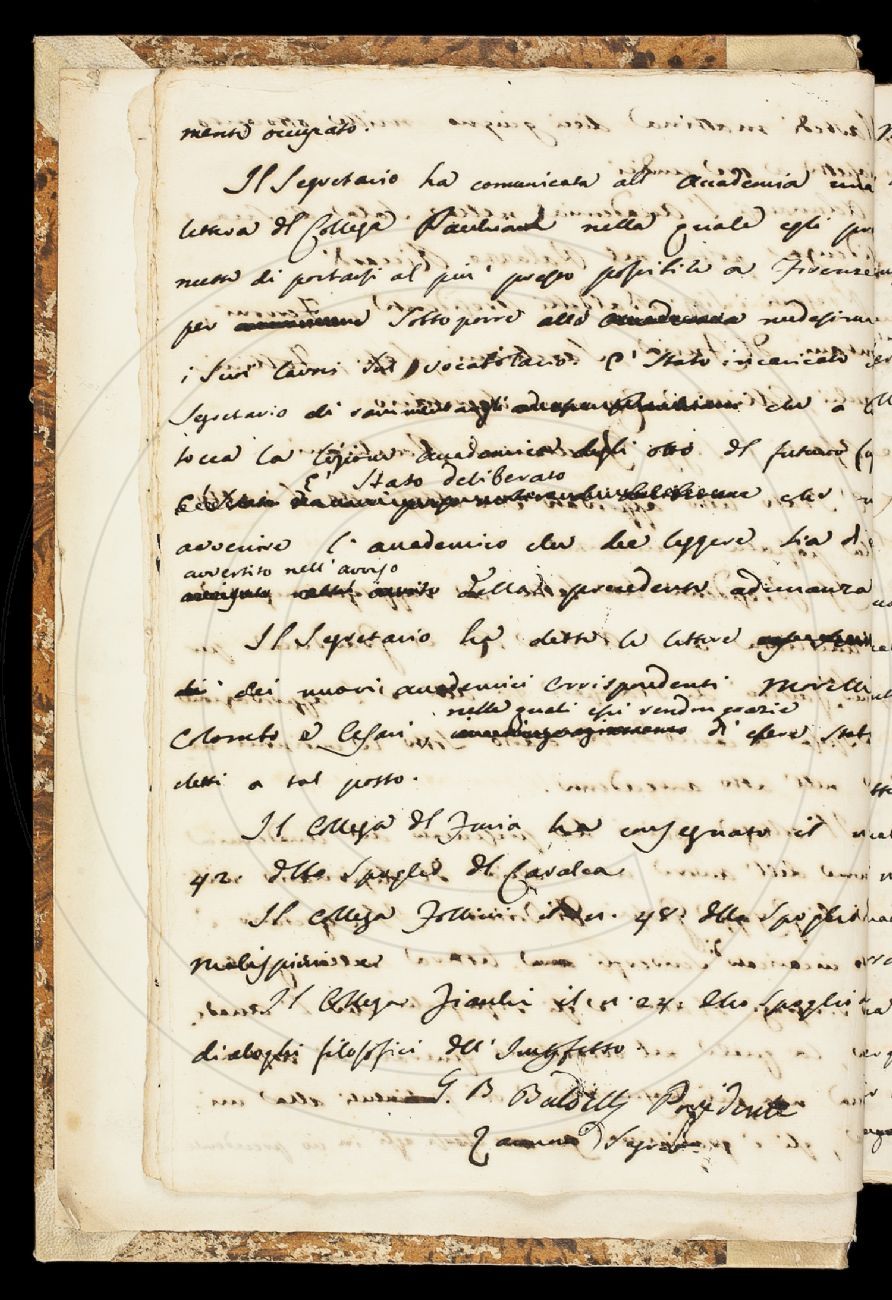 mente occupato.
Il Segretario ha comunicata all' Accademia una
lettera del Collega nella quale egli pro
mette di portarsi al più presto possibile a Firenze
per sottoporre alla medesima
i suoi lavori sul vocabolario. E' stato incaricato
Segretario di che a
tocca la lezione accademica degli otto del futuro
E' stato deliberato
che
avvenire l'accademico che dee leggere sia
avvertito nell'avviso
della precedente adunanza
Il Segretario ha lette le lettere
dei nuovi accademici corrispondenti Morelli
nelle quali essi rendon grazie
Colombo e Cesari di essere stati
eletti a tal posto.
Il Collega del Furia ha consegnato il
42. dello Spoglio del Cavalca
Il Collega Follini il n. 48. dello Spoglio
Malispini
Il Collega Fiacchi il n. 24. dello Spoglio
dialoghi filosofici dell'
G B Baldelli Presidente
Zannoni Segret.